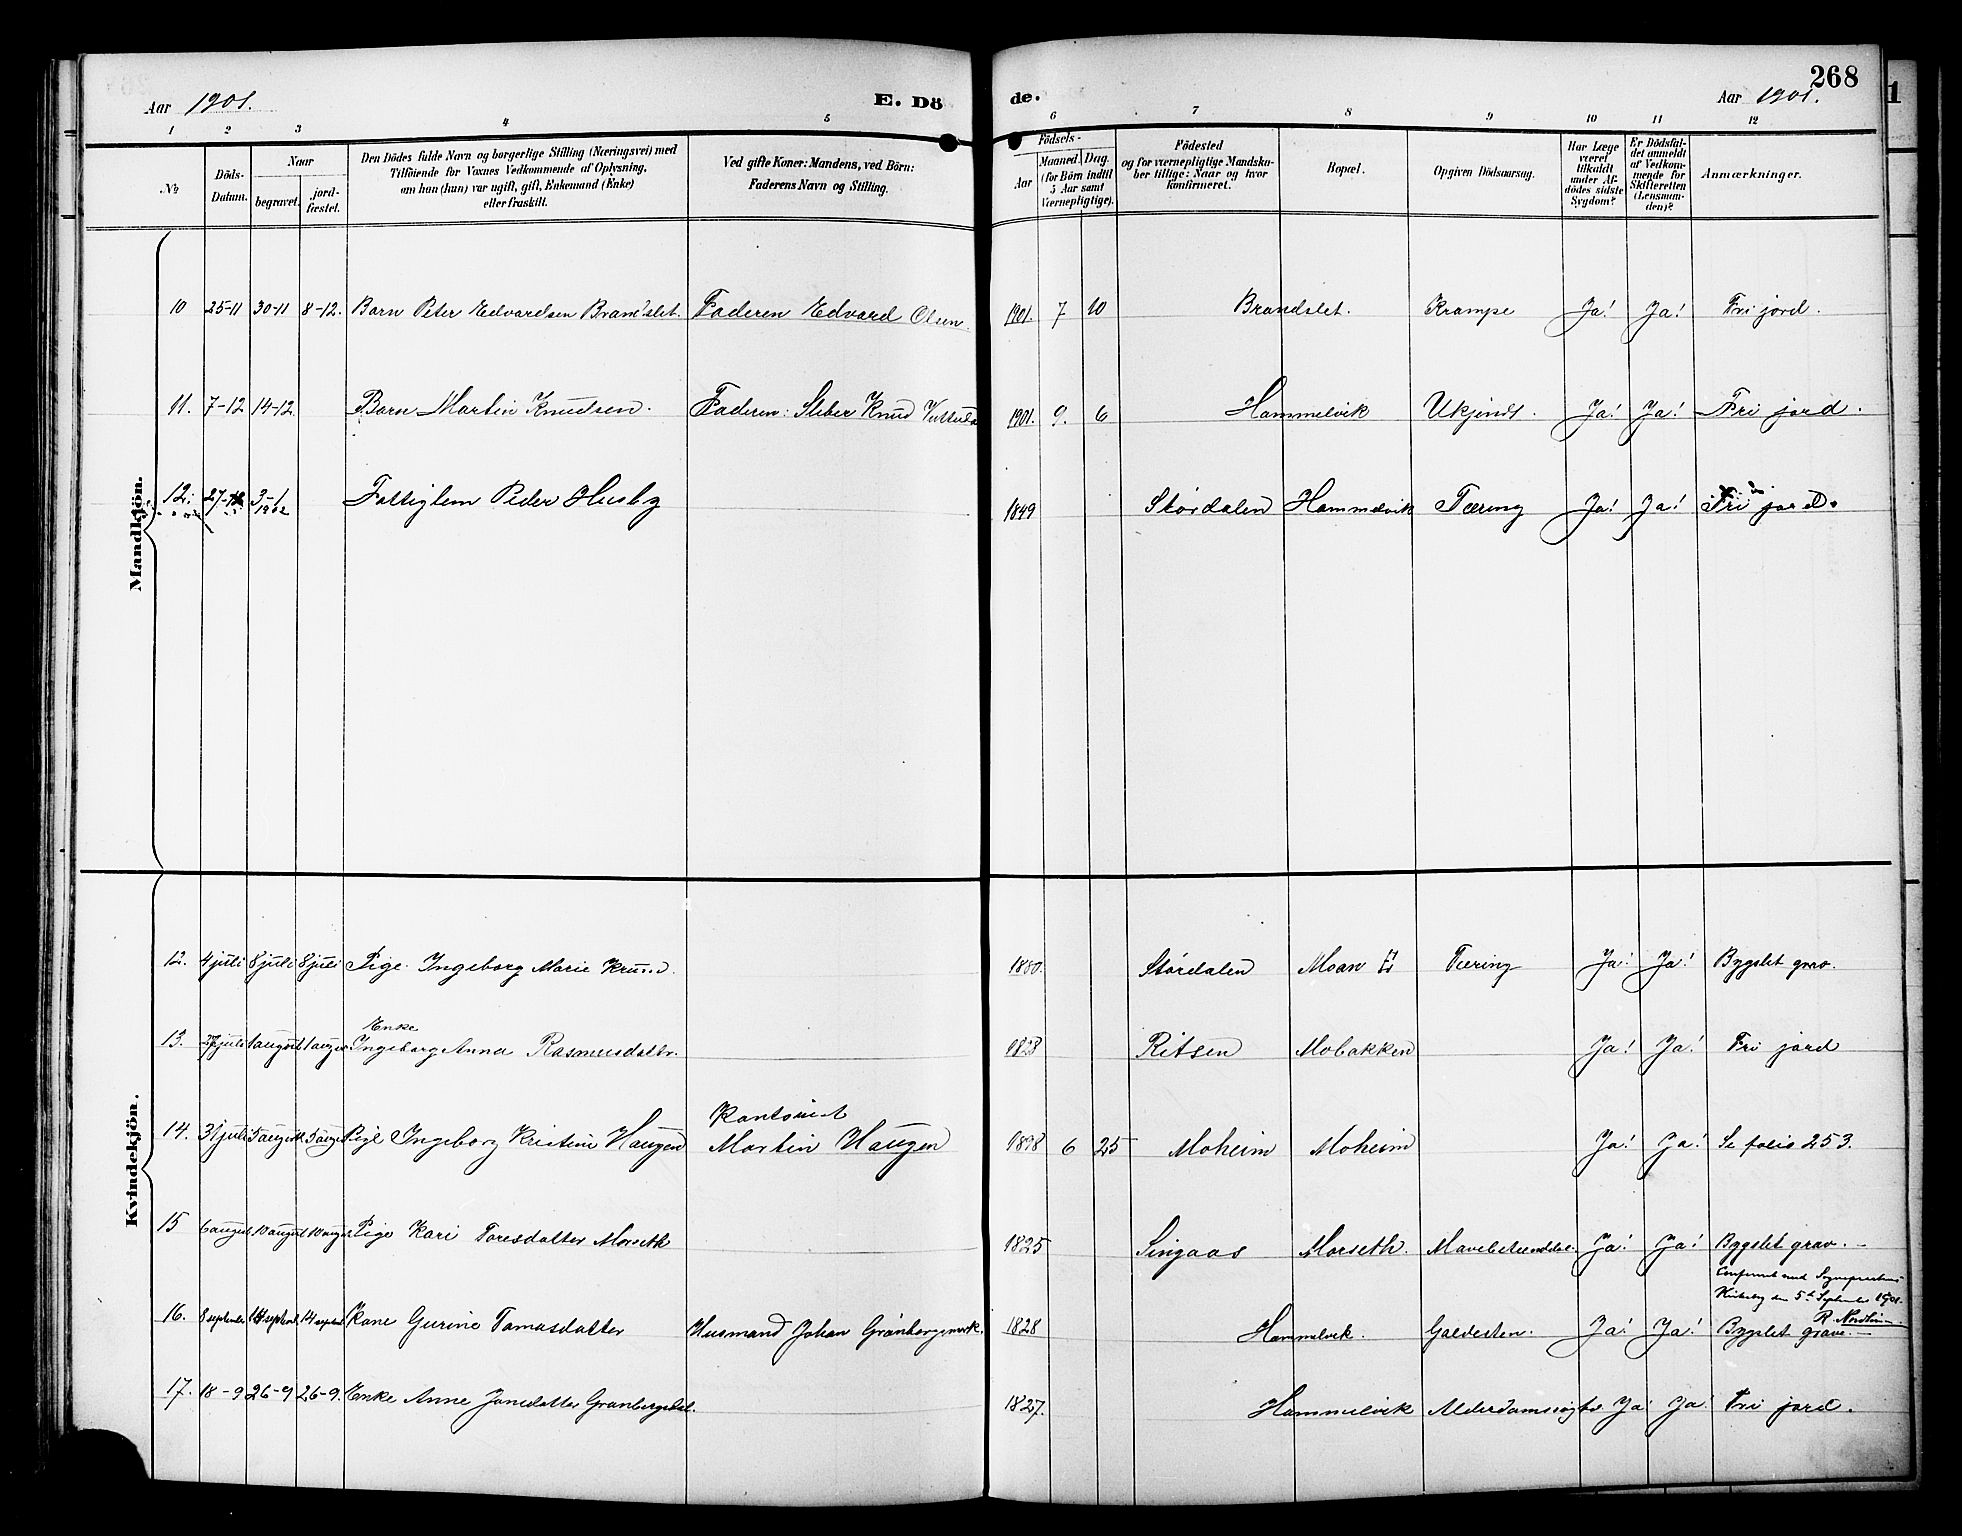 268
Aar 1901.
E. Dö
de.
Aar 1901.
1 2 3 4 5 6 7 8 9 10 11 12
No
Döds-
Datum.
Naar
begravet.
jord-
fæstet.
Den Dödes fulde Navn og borgerlige Stilling (Næringsvei) med
Tilföiende for Voxnes Vedkommende af Oplysning,
om han (hun) var ugift, gift, Enkemand (Enke)
eller fraskilt.
Ved gifte Koner: Mandens, ved Börn:
Faderens Navn og Stilling.
Födsels-
Aar
Maaned. Dag.
(for Börn indtil
5 Aar samt
Værnepligtige).
Födested
og for værnepligtige Mandska-
ber tillige: Naar og hvor
konfirmeret.
Bopæl.
Opgiven Dödsaarsag.
Har Læge
været
tilkaldt
under Af-
dödes sidste
Sygdom?
Er Dödsfal-
det anmeldt
af Vedkom-
mende for
Skifteretten
(Lensman-
den)?
Anmærkninger.
Mandkjön.
10 25-11 30-11 8-12. Barn Peter Edvardsen Brandslet. Faderen Edvard Olsen. 1901 7 10 Brandslet. Krampe Ja! Ja! Fri jord.
11. 7-12 14-12 Barn Martin Knudsen. Faderen: Knud 1901. 9. 6 Hammelvik Ukjendt. Ja! Ja! Fri jord.
12. 27-12 3-1 1902 Fattiglem Peder Husby 1849 Stördalen Hammelvik Tæring Ja! Ja! Fri jord.
Kvindekjön.
12. 4 juli 8 juli 8 juli Pige Ingeborg Marie 1880. Stördalen Moan Tæring Ja! Ja! Bygslet grav.
Enke
13. 27 juli 1 august 1 august Ingeborg Anna Rasmusdatter. 1823 Ritsen Mobakken Ja! Ja! Fri jord
Kantonist
14. 31 juli 5 august 5 august Pige Ingeborg Kristine Haugen Martin Haugen 1898 6 25 Moheim Moheim Ja! Ja! Se folio 253.
15 6 august 10 august 10 august Pige Kari Toresdatter Morseth 1825 Singaas Morseth. Ja! Ja! Bygslet grav.
Septemb. 1901.
16. 8 september 14 septemb 14 septemb Kone Gurine Tomasdatter Husmand Johan Grönbergsmark. 1828 Hammelvik. Galdesten. Ja! Ja! Bygslet grave.
17. 18-9 26-9 26-9. Enke Anne Jonsdatter 1827. Hammelvik Ja Ja! Fri jord.